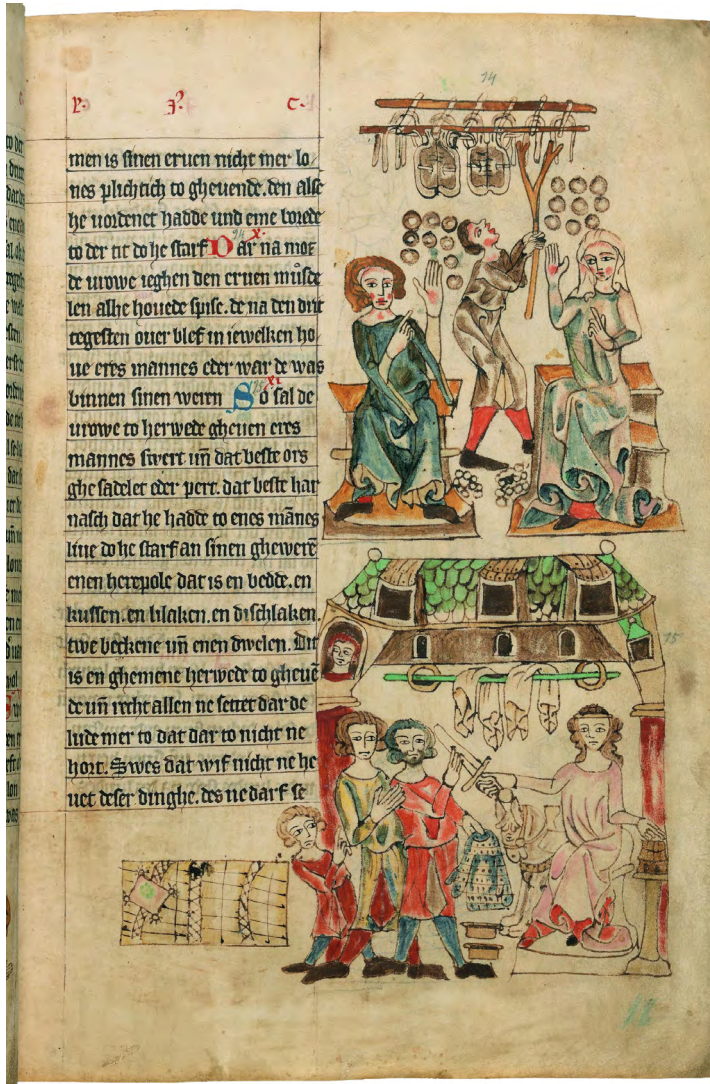 14
men is sinen eruen nicht mer lo
nes plichtich to gheuende. den alse
he uordenet hadde und eme borede
to der tit do he starf Dar na mot
de urowe ieghen den eruen musde
len alle houede spise. de na den drit
tegesten ouer blef in iewelken ho
ue eres mannes eder war de was
binnen sinen weren So sal de
urowe to herwede gheuen eres
mannes swert un dat beste ors
ghe sadelet eder pert. dat beste har
nasch dat he hadde to enes mānes
liue do he starf an sinen ghewerē
enen herepole dat is en bedde. en
kussen. en lilaken. en dischlaken.
twe beckene un enen dwelen. Dit
is en ghemene herwede to gheuē
de un recht allen ne settet dar de
lude mer to dat dar to nicht ne
hort. Swes dat wif nicht ne he
uet deser dinghe. des ne darf se
15